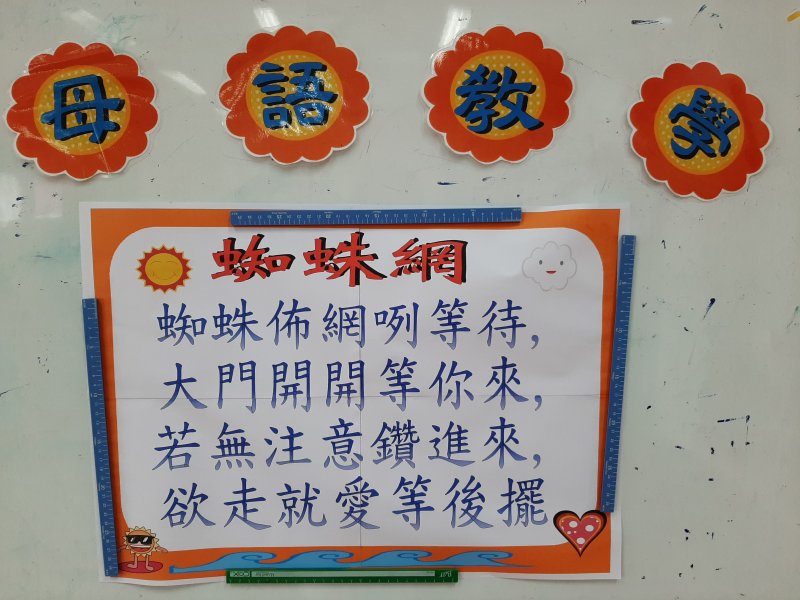 母語教學
蜘蛛網
蜘蛛佈網咧等待,
大門開開等你來,
若無注意鑽進來,
欲走就愛等後擺